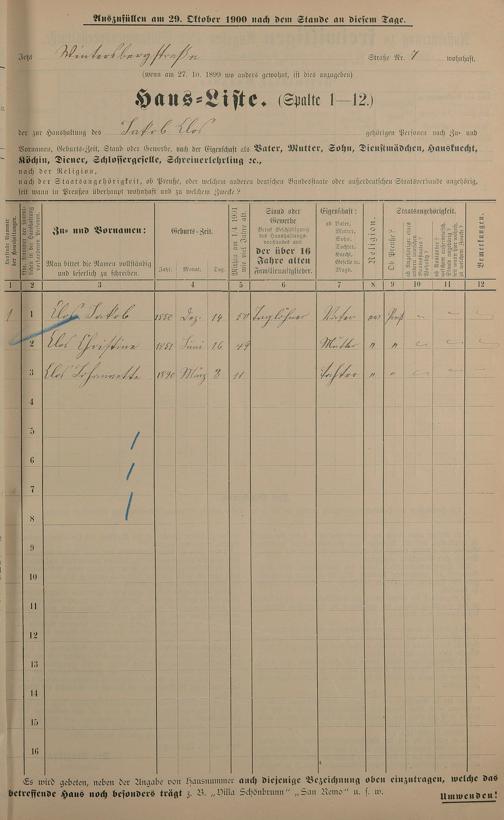 Auszufüllen am 29. Oktober 1900 nach dem Stande an diesem Tage.
Jetz Wintersbergstraße Straße Nr. 7 wohnhaft.
(wenn am 27. 10. 1899 wo anders gewohnt, ist dies anzugeben)
Haus=Liste. (Spalte 1—12.)
der zur Haushaltung des Jakob Clos gehörigen Personen nach Zu- und
Vornamen, Geburts-Zeit, Stand oder Gewerbe, nach der Eigenschaft als Vater, Mutter, Sohn, Dienstmädchen, Hausknecht,
Köchin, Diener, Schlossergeselle, Schreinerlehrling ꝛc.,
nach der Religion,
nach der Staatsangehörigkeit, ob Preuße, oder welchem anderen deutschen Bundesstaate oder außerdeutschen Staatsverbande angehörig,
seit wann in Preußen überhaupt wohnhaft und zu welchem Zwecke?
Zu= und Vornamen:
Man bittet die Namen vollständig und leserlich zu schreiben.
Geburts=Zeit.
Jahr. Monat. Tag.
Stand oder Gewerbe
der über 16 Jahre alten
Familienmitglieder.
Eigenschaft:
ob Vater, Mutter, Sohn, Tochter, Knecht, Geselle,
Magd.
Religion.
Staatsangehörigkeit.
Ob Preuße?
Bemerkungen.
1 2 3 4 5 6 7 8 9 10 11 12
1 1 Clos Jakob 1850 Dez. 14 50 Taglöhner Vater Preuß
2 Clos Christine 1851 Juni 16 49 Mutter " "
3 Clos Johannette 1890 März 8 11 Tochter " "
4
5
6
7
8
9
10
11
12
13
14
15
16
Es wird gebeten, neben der Angabe von Hausnummer auch diejenige Bezeichnung oben einzutragen, welche das
betreffende Haus noch besonders trägt z. B. „Villa Schönbrunn" „San Remo" u. s. w.
Umwenden!